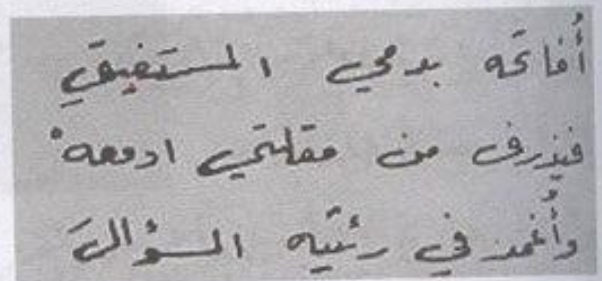 أُفاتحه بدمي المستفيقِ
فيذرف من مقلتي ادمعهْ
وأُغمد في رئتيه السؤالَ